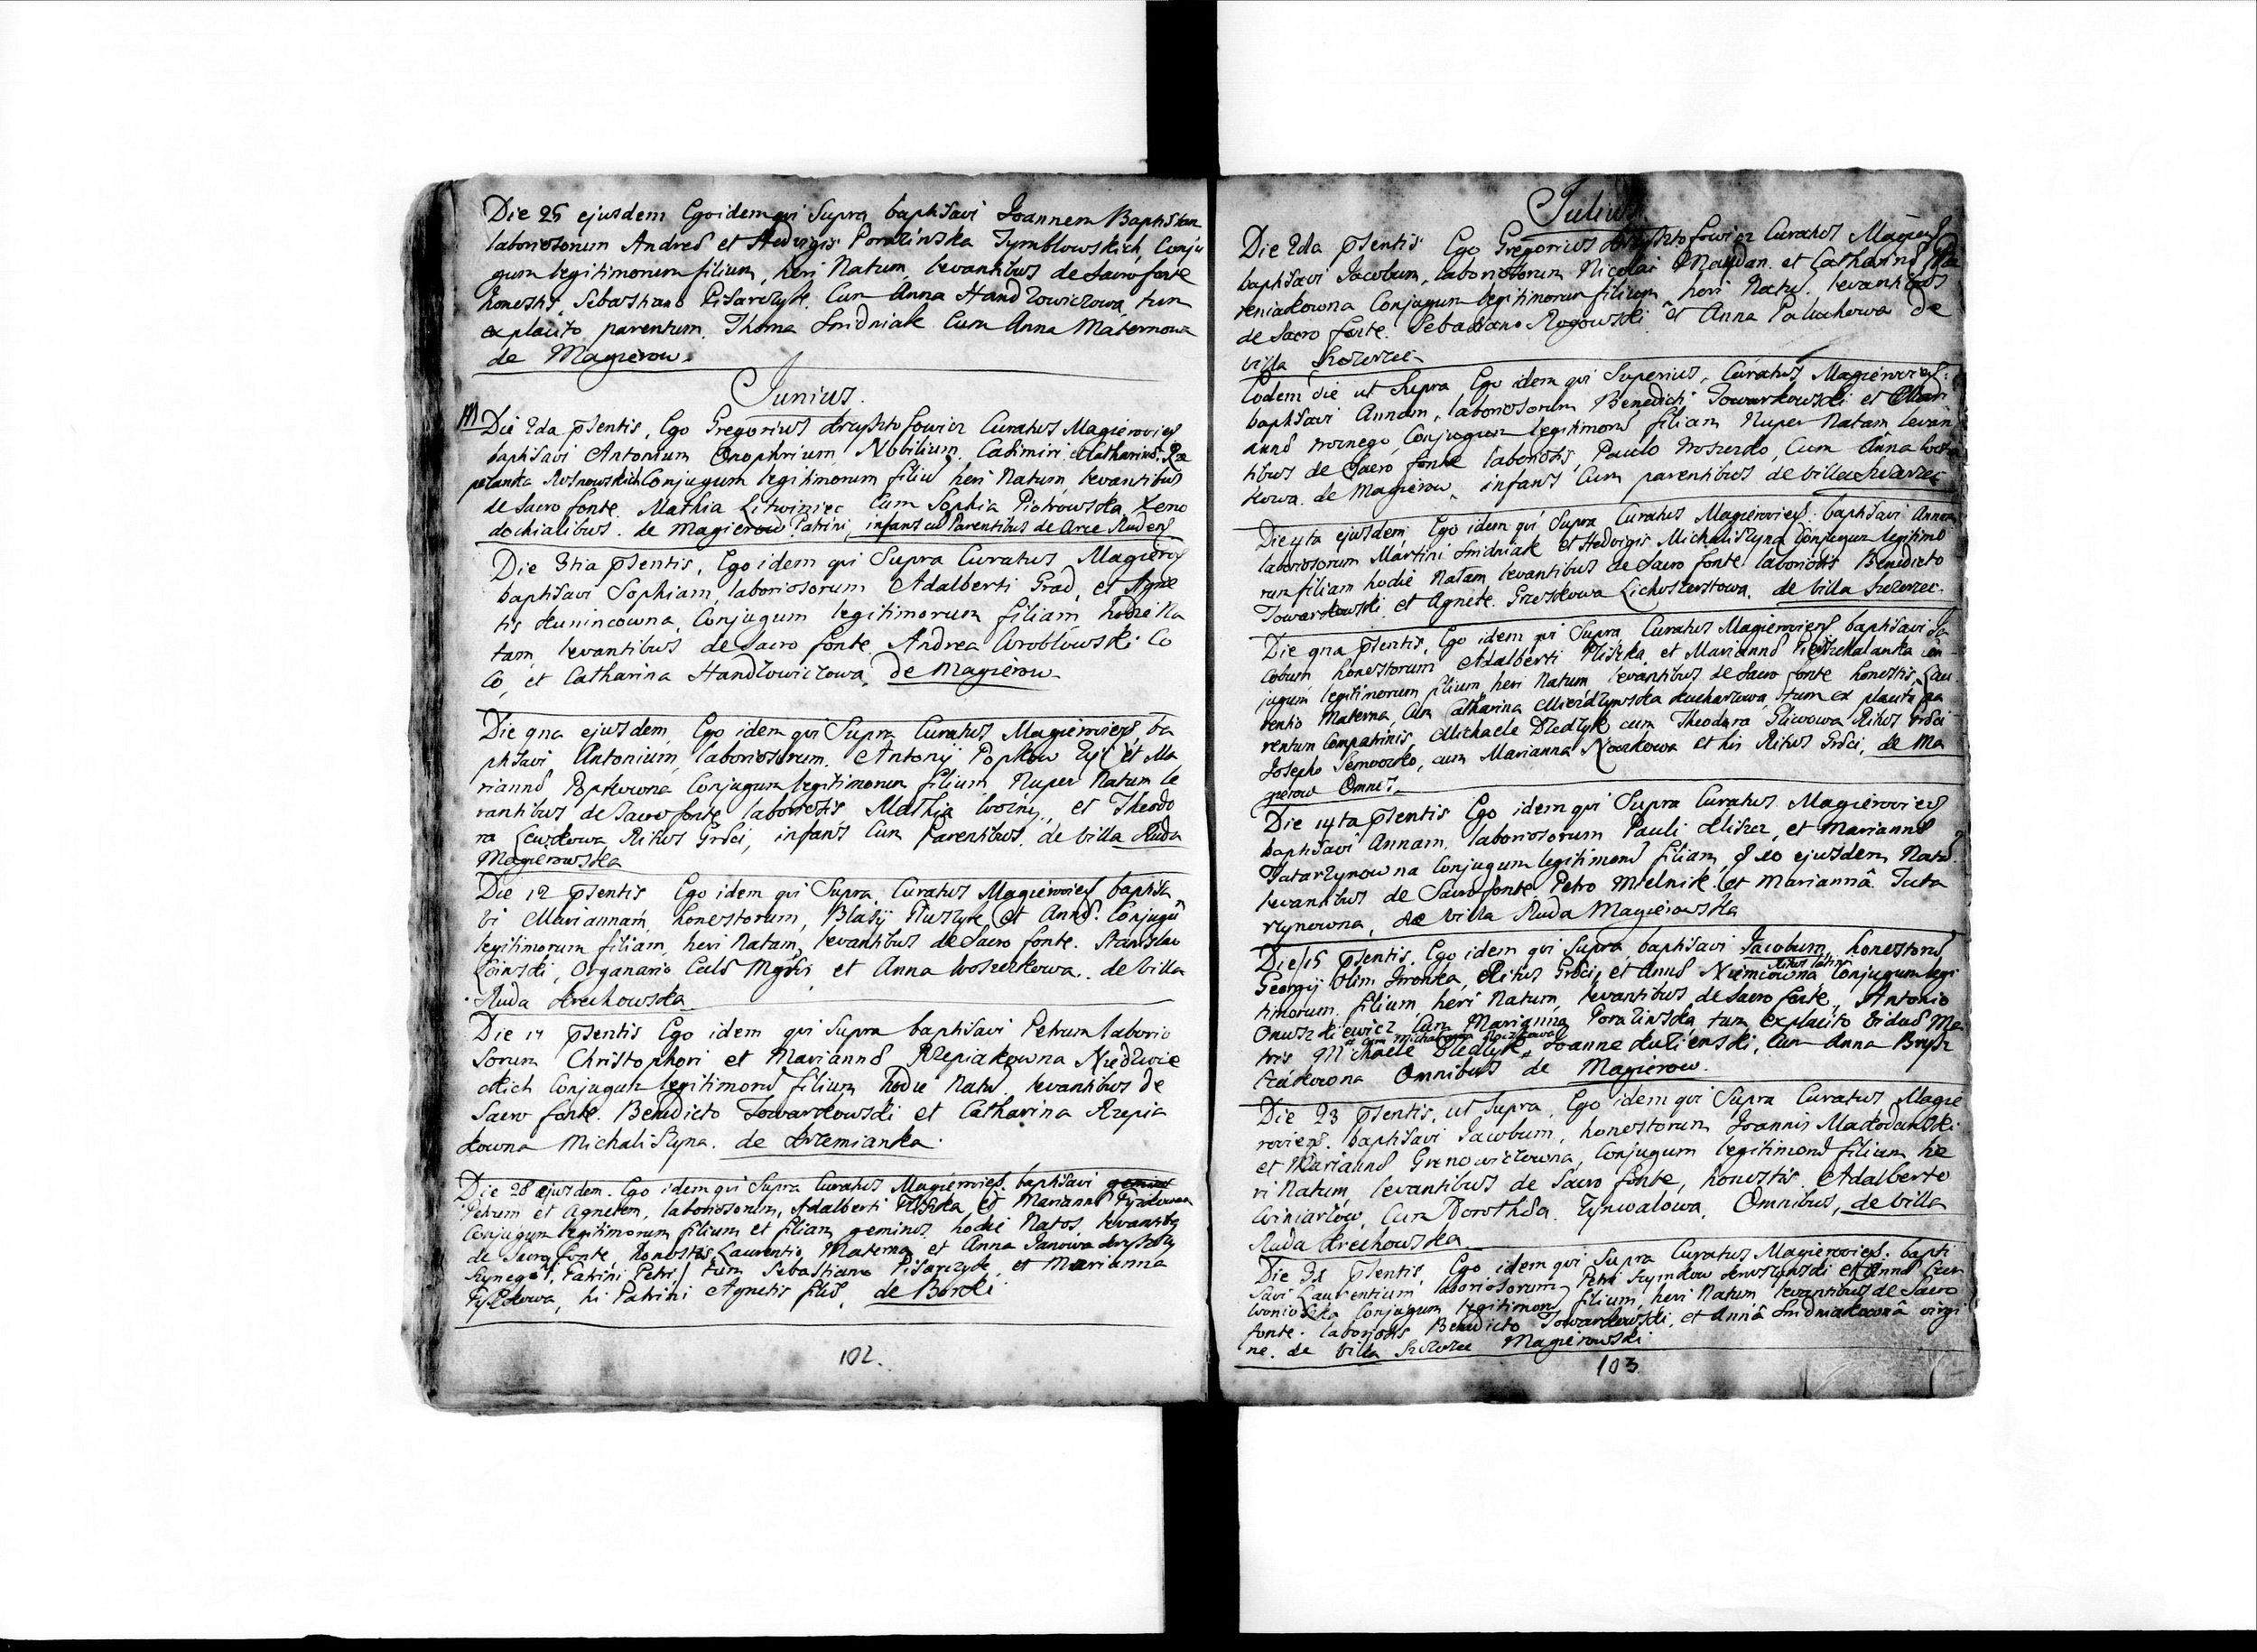 Die 25 ejusdem Ego idem qui Supra baptisavi Joannem Baptistam
laboriosorum Andreæ et Hedvigis Poralińska Tymblowskich, Conju
gum legitimorum filium, heri Natum, levantibus de Sacro fonte
honestis, Sebastiano Pisarczyk Cum Anna Handlowiczowa, tum
ex placito parentum, Thoma Snidniak Cum Anna Maternowa
de Magierow.
Junius.
Die 2da pSentis, Ego Gregorius Krzysztofowicz Curatus Magieroviens
baptisavi Antonium Onophrium, Nobilium, Casimiri et Catharinæ
Conjugum legitimorum filiū heri Natum, levantibus
de Sacro fonte. Mathia Litwiniec Cum Sophia Piotrowska Xeno
dochialibus. de Magierow Patrini, infans cū Parentibus de Arce Rudens
Die 3tia pSentis, Ego idem qui Supra Curatus Magierovs
baptisavi Sophiam, laboriosorum Adalberti Grad, et Agne
tis Kunincowna, Conjugum legitimorum filiam, hodie Na
tam, levantibus de Sacro fonte. Andrea Wroblowski Co
Co, et Catharina Handlowiczowa, de Magierow.
Die 9na ejusdem, Ego idem qui Supra Curatus Magieroviens, ba
ptisavi Antonium, laboriosorum. Antonij Popkow et Ma
riannæ Popkowna Conjugum legitimorum filium, Nuper Natum le
vantibus de Sacro fonte laboriosis Mathia Woiny, et Theodo
ra Lewkowa Ritus Græci, infans Cum Parentibus de Villa Ruda
Magierowska
Die 12 pSentis Ego idem qui Supra Curatus Magieroviens baptisa
vi Mariannam, honestorum, Blasij Gluszyk et Annæ. Conjugū
legitimorum filiam, heri Natam, levantibus de Sacro fonte. Stanislao
Loinski, Organario et Anna Woszczkowa. de Villa
Ruda Krechowska
Die 17 pSentis Ego idem qui Supra baptisavi Petrum laborio
sorum Christophori et Mariannæ Rzepiakowna Niedzwie
ckich Conjugum legitimorū filium hodie Natū levantibus de
Sacro fonte. Benedicto Towarkowski et Catharina Rzepia
kowna Michaliszyna. de Krzemianka.
Die 28 ejusdem. Ego idem qui Supra Curatus Magieroviens. baptisavi geminos
Petrum et Agnetem, laboriosorum, Adalberti Fliszka et Mariannæ
Conjugum legitimorum filium et filiam geminos, hodie Natos, levantibus
de Sacro fonte, honestis Laurentio, Materna et Anna Janowa
Patrini Petri, tum Sebastiano Pisarczyk, et Marianna
hi Patrini Agnetis filiæ, de Borki
102.
Julius
Die 2da pSentis Ego Gregorius Krzysztofowicz Curatus Magierovs
baptisavi Jacobum, laboriosorum Nicolai Maydan. et Catharinæ
reniakowna Conjugum legitimorum filium, heri Natū. levantibus
de Sacro fonte. Sebastiano Rogowski et Anna Paluchowa de
Villa Szczerzec
Eodem die ut Supra Ego idem qui Superius, Curatus Magieroviens:
baptisavi Annam, laboriosorum Benedicti Towarkowski et Mari
annæ Conjugum legitimorū filiam Nuper Natam levan
tibus de Sacro fonte laboriosis, Paulo Cum Anna
kowa. de Magierow. infans Cum parentibus de Villa Szczerzec
Die 4ta ejusdem Ego idem qui Supra Curatus Magieroviens: baptisavi Annam
laboriosorum Martini Snidniak et Hedvigis Michaliszyna Conjugum legitimo
rum filiam hodie Natam, levantibus de Sacro fonte laboriosis Benedicto
Towarkowski et Agnete. de Villa Szczerzec.
Die 9na pSentis, Ego idem qui Supra Curatus Magieroviens baptisavi Ja
cobum honestorum Adalberti Fliszka, et Mariannæ Con
jugum legitimorum filium, heri Natum, levantibus de Sacro fonte honestis, Lau
rentio Materna, Cum Catharina Kucharzowa, tum ex placito pa
rentum Compatrinis, Michaele Dledzyk cum Theodora Gliwowa Ritus Græci
Josepho cum Marianna Noczkowa et hi Ritus Græci, de Ma
gierow Omnes.
Die 14ta pSentis Ego idem qui Supra Curatus Magieroviens
baptisavi Annam, laboriosorum Pauli Kliszcz, et Mariannæ
Tatarzynowna Conjugum legitimorū filiam, ejusdem Natā
levantibus de Sacro fonte Petro Mielnik et Mariannâ Tata
rzynowna, de Villa Ruda Magierowska
Die 15 pSentis, Ego idem qui Supra baptisavi Jacobum, honestorū
Georgij Olim Ritus Græci, et Annæ Niemcowna Ritus latini Conjugum legi
timorum filium heri Natum, levantibus de Sacro fonte, Antonio
Onuszkiewicz Cum Marianna Poralinska, tum ex placito viduæ Ma
tris Michaele Dledzyk Joanne Kuzienski, cum Anna
Omnibus de Magierow.
Die 23 pSentis, ut Supra, Ego idem qui Supra Curatus Magie
roviens. baptisavi Jacobum, honestorum Joannis
et Mariannæ Grenowiczowna, Conjugum legitimorū filium he
ri Natum, levantibus de Sacro fonte, honestis Adalberto
Winiarzow, Cum Dorothea Zynwalowa, Omnibus, de Villa
Ruda Krechowska
Die 31 pSentis, Ego idem qui Supra Curatus Magieroviens. bapti
savi Laurentium laboriosorum, Petri et Annæ
Conjugum legitimorū filium, heri Natum levantibus de Sacro
fonte. laboriosis Benedicto Towarkowski, et Annâ Snidniakownâ virgi
ne. de Villa Szczerzec Magierowski
103.